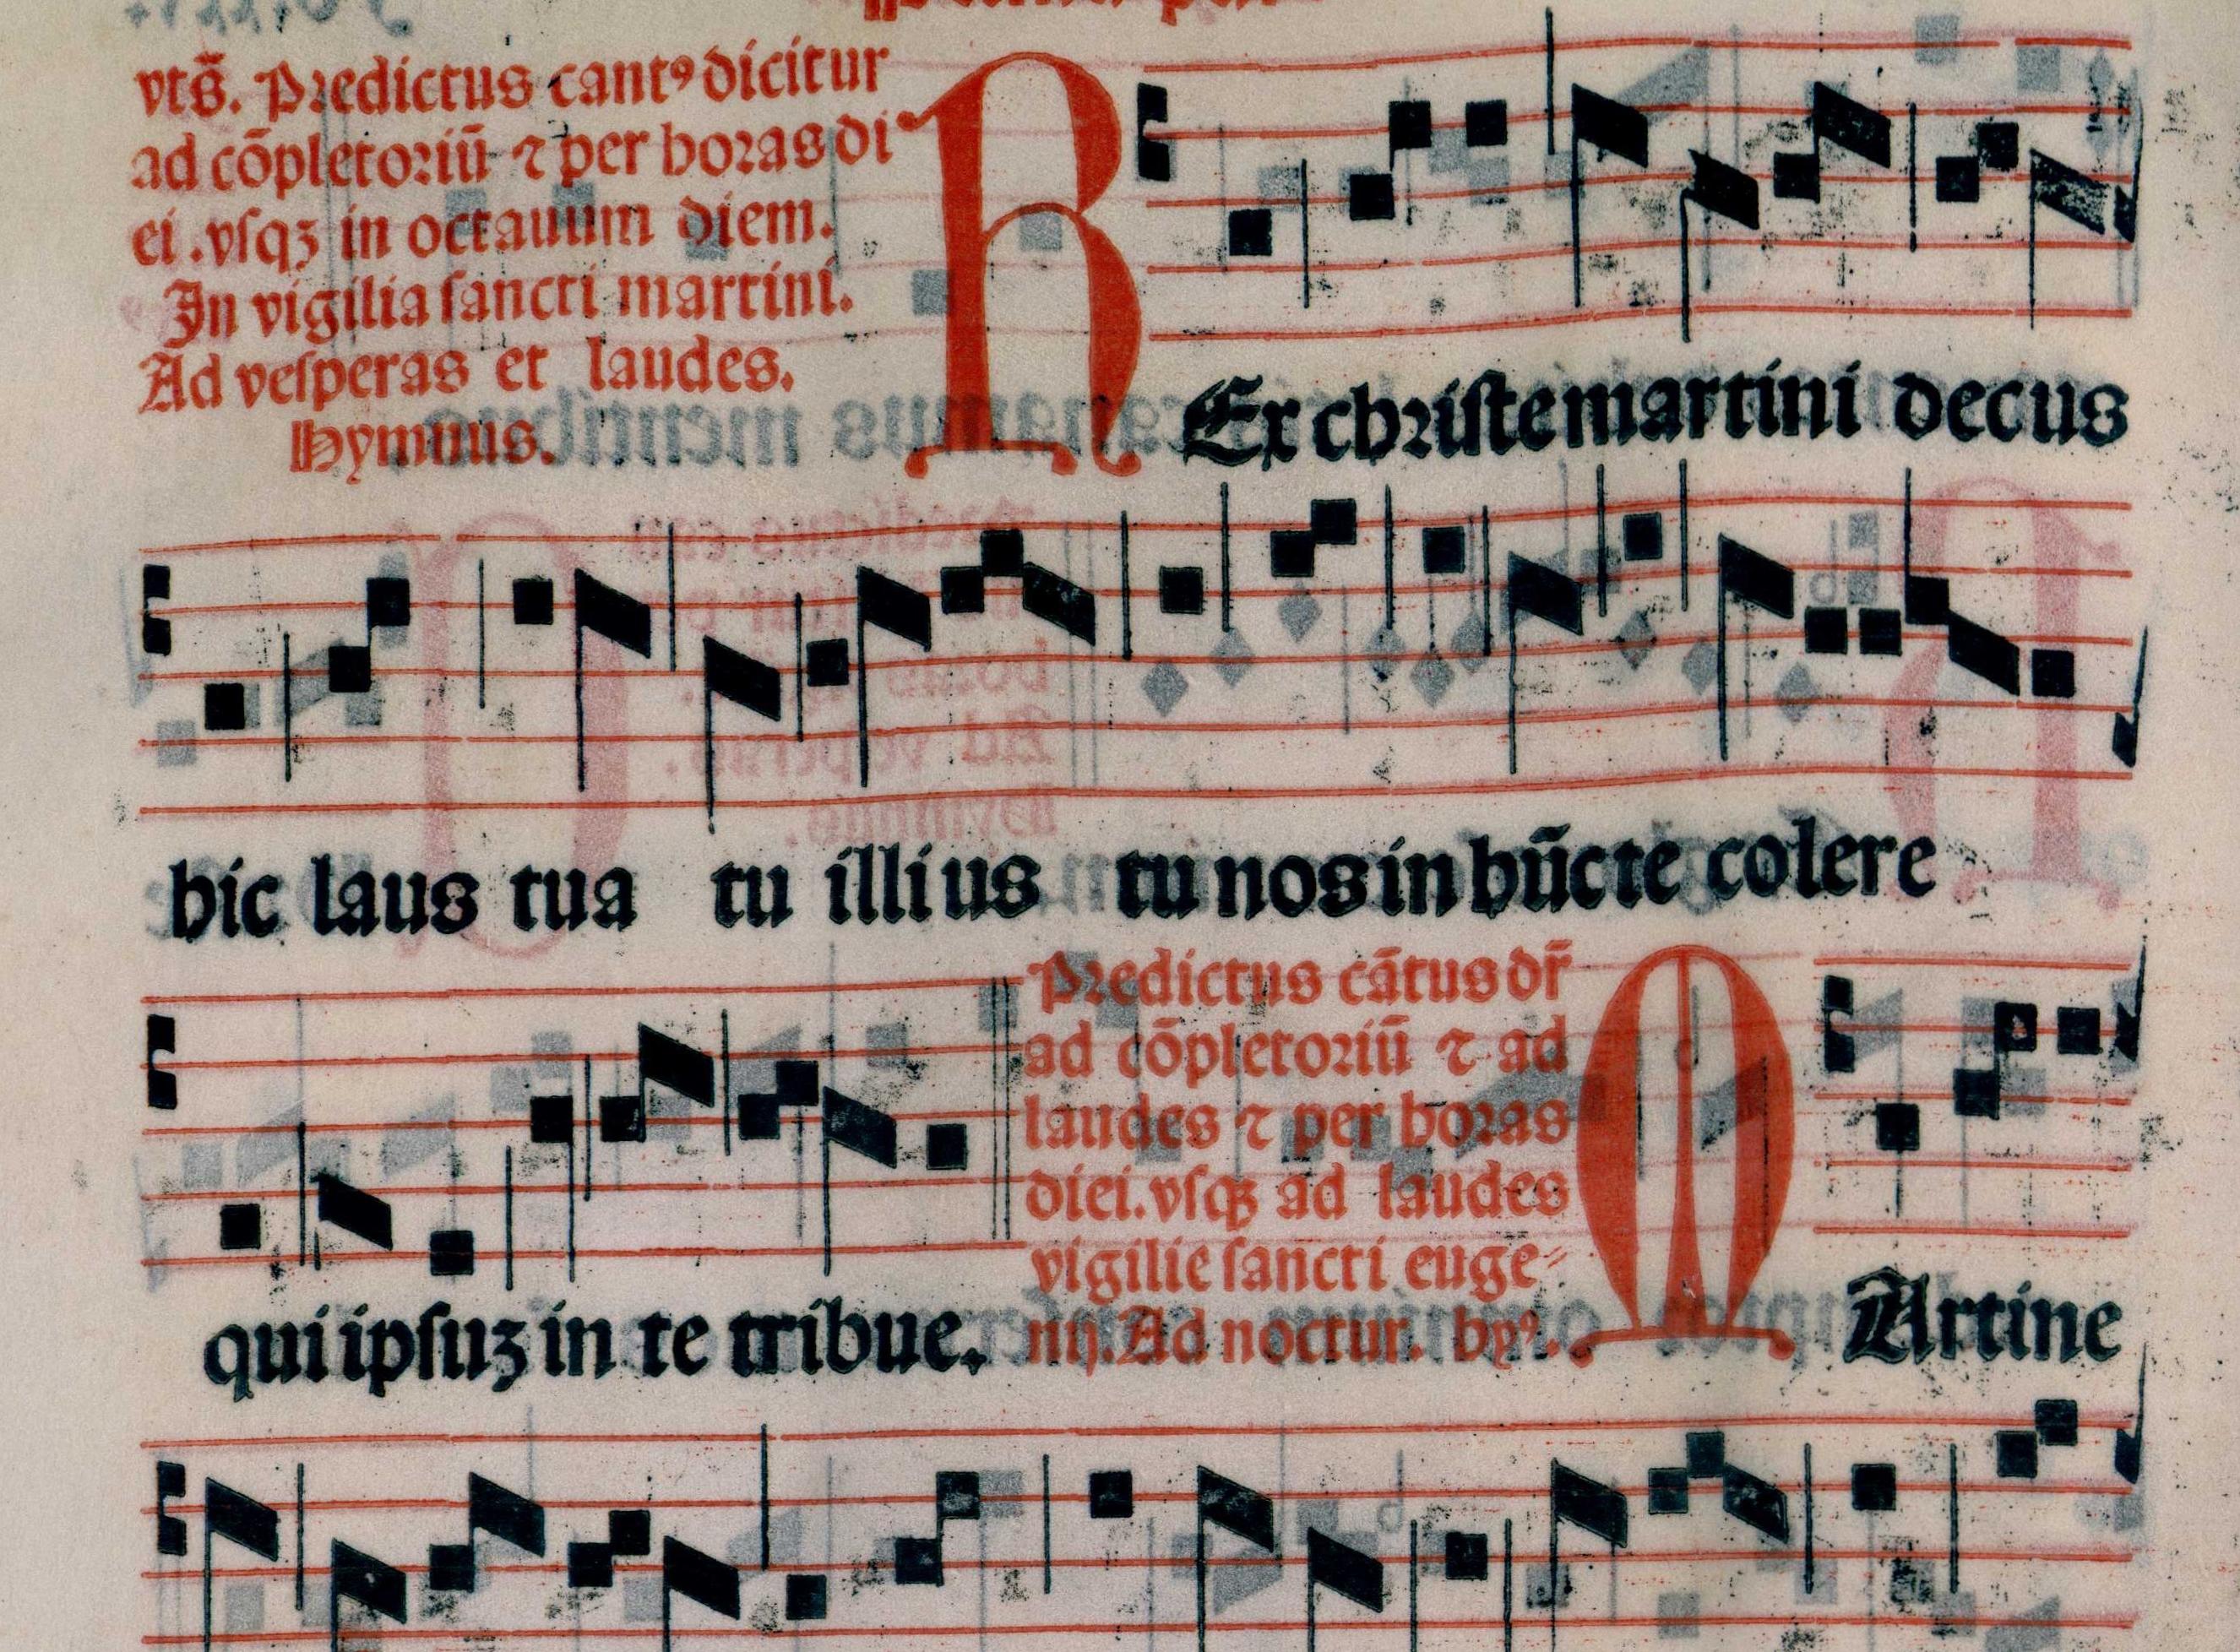 vts̃. Predictus cantꝰ dicitur
ad cõpletoriũ ⁊ per horas di
ei .vſqꝫ in octauum diem.
In vigilia ſancti martini.
Ad veſperas et laudes.
Hymnus.
REx chriſte martini decus
hic laus tua tu illius tu nos in hũc te colere
qui ipſuꝫ in te tribue.
Predictus cãtus dr̃
ad cõpletoriũ ⁊ ad
laudes ⁊ per horas
diei. vſqꝫ ad laudes
vigilie ſancti euge⸗
nij. Ad noctur. hyꝰ.
MArtine